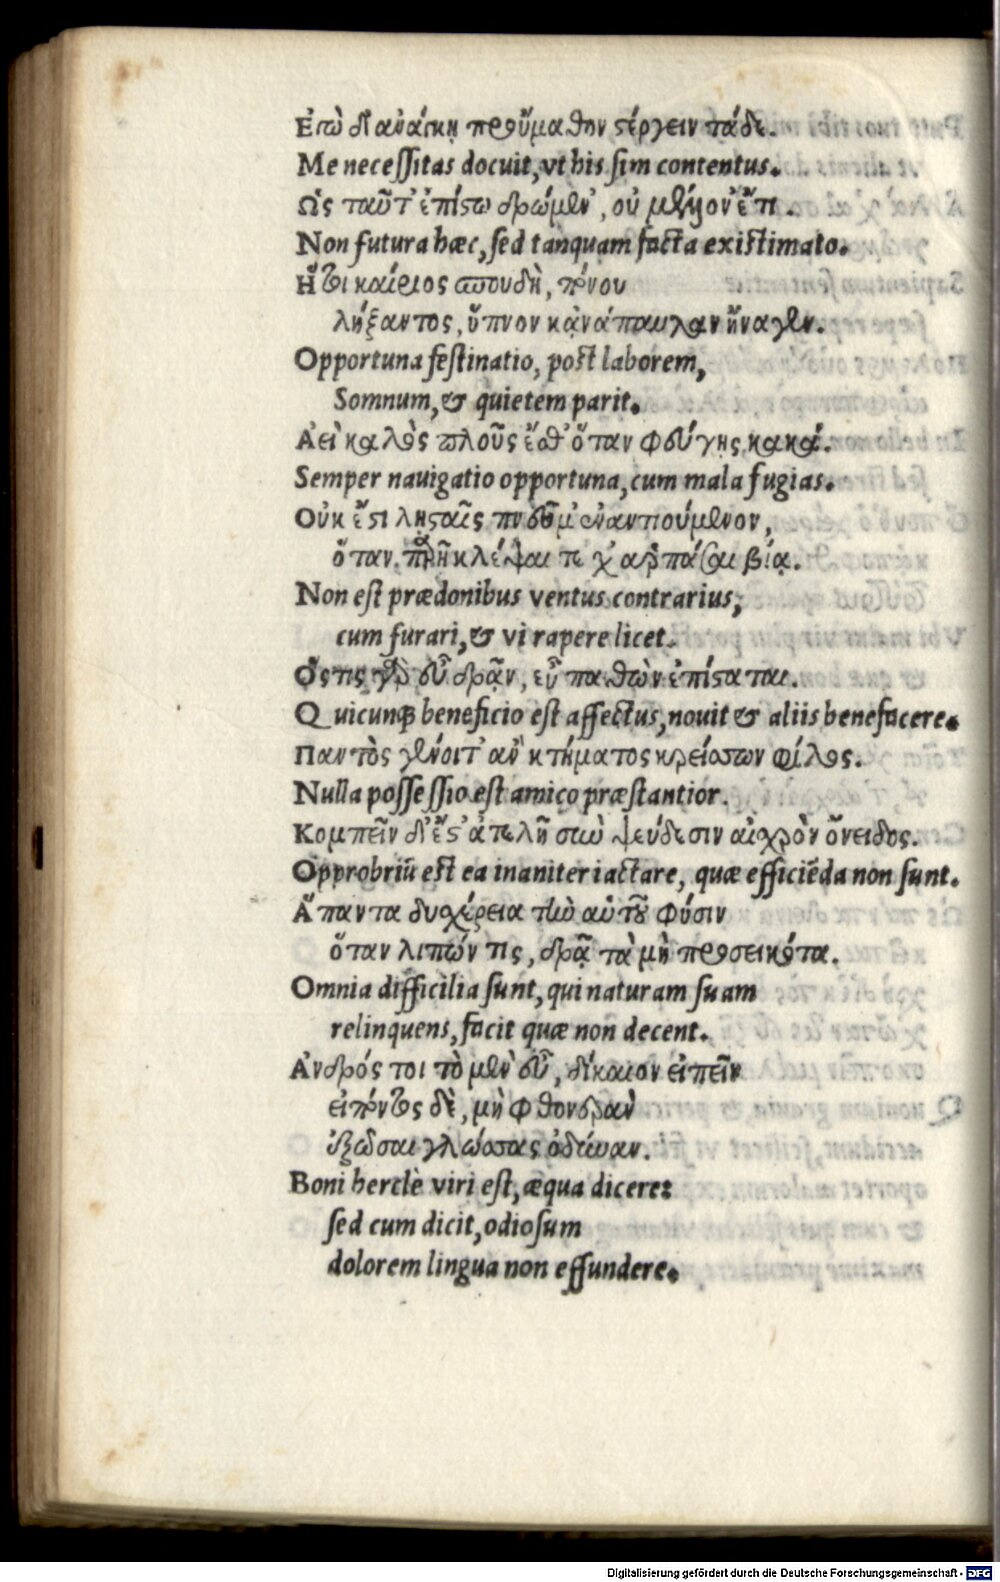 Ἐγὼ δ' ἀνάγκῃ προύμαθον στέργειν τάδε.
Me necessitas docuit, vt his sim contentus.
Ὡς ταῦτ' ἐπίστω δρώμεν', οὐ μέλλοντ' ἔτι.
Non futura hæc, sed tanquam facta existimato.
Ἥ τοι καίριος σπουδὴ, πόνου
λήξαντος, ὕπνον κἀνάπαυλαν ἤγαγεν.
Opportuna festinatio, post laborem,
Somnum, & quietem parit.
Ἀεὶ καλὸς πλοῦς ἔσθ' ὅταν φεύγῃς κακά.
Semper nauigatio opportuna, cum mala fugias.
Οὐκ ἔστι λῃσταῖς πνεῦμ' ἐναντιούμενον,
ὅταν παρῇ κλέψαι τε χ' ἁρπάσαι βίᾳ.
Non est prædonibus ventus contrarius,
cum furari, & vi rapere licet.
Ὅστις γὰρ εὖ δρᾷν, εὖ παθὼν ἐπίσταται.
Quicunqꝫ beneficio est affectus, nouit & aliis benefacere.
Παντὸς γένοιτ' ἂν κτήματος κρείσσων φίλος.
Nulla possessio est amico præstantior.
Κομπεῖν δ' ἔστ' ἀτελῆ σὺν ψεύδεσιν αἰχρὸν ὄνειδος.
Opprobriū est ea inaniter iactare, quæ efficiēda non sunt.
Ἅπαντα δυχέρεια τὴν αὑτοῦ φύσιν
ὅταν λιπών τις, δρᾷ τὰ μὴ προσεικότα.
Omnia difficilia sunt, qui naturam suam
relinquens, facit quæ non decent.
Ἀνδρός τοι τὸ μὲν εὖ, δίκαιον εἰπεῖν
εἰπόντος δὲ, μὴ φθονερὰν
ἐξῶσαι γλώσσας ὀδύναν.
Boni herclè viri est, æqua dicere:
sed cum dicit, odiosum
dolorem lingua non effundere.
Digitalisierung gefördert durch die Deutsche Forschungsgemeinschaft - DFG